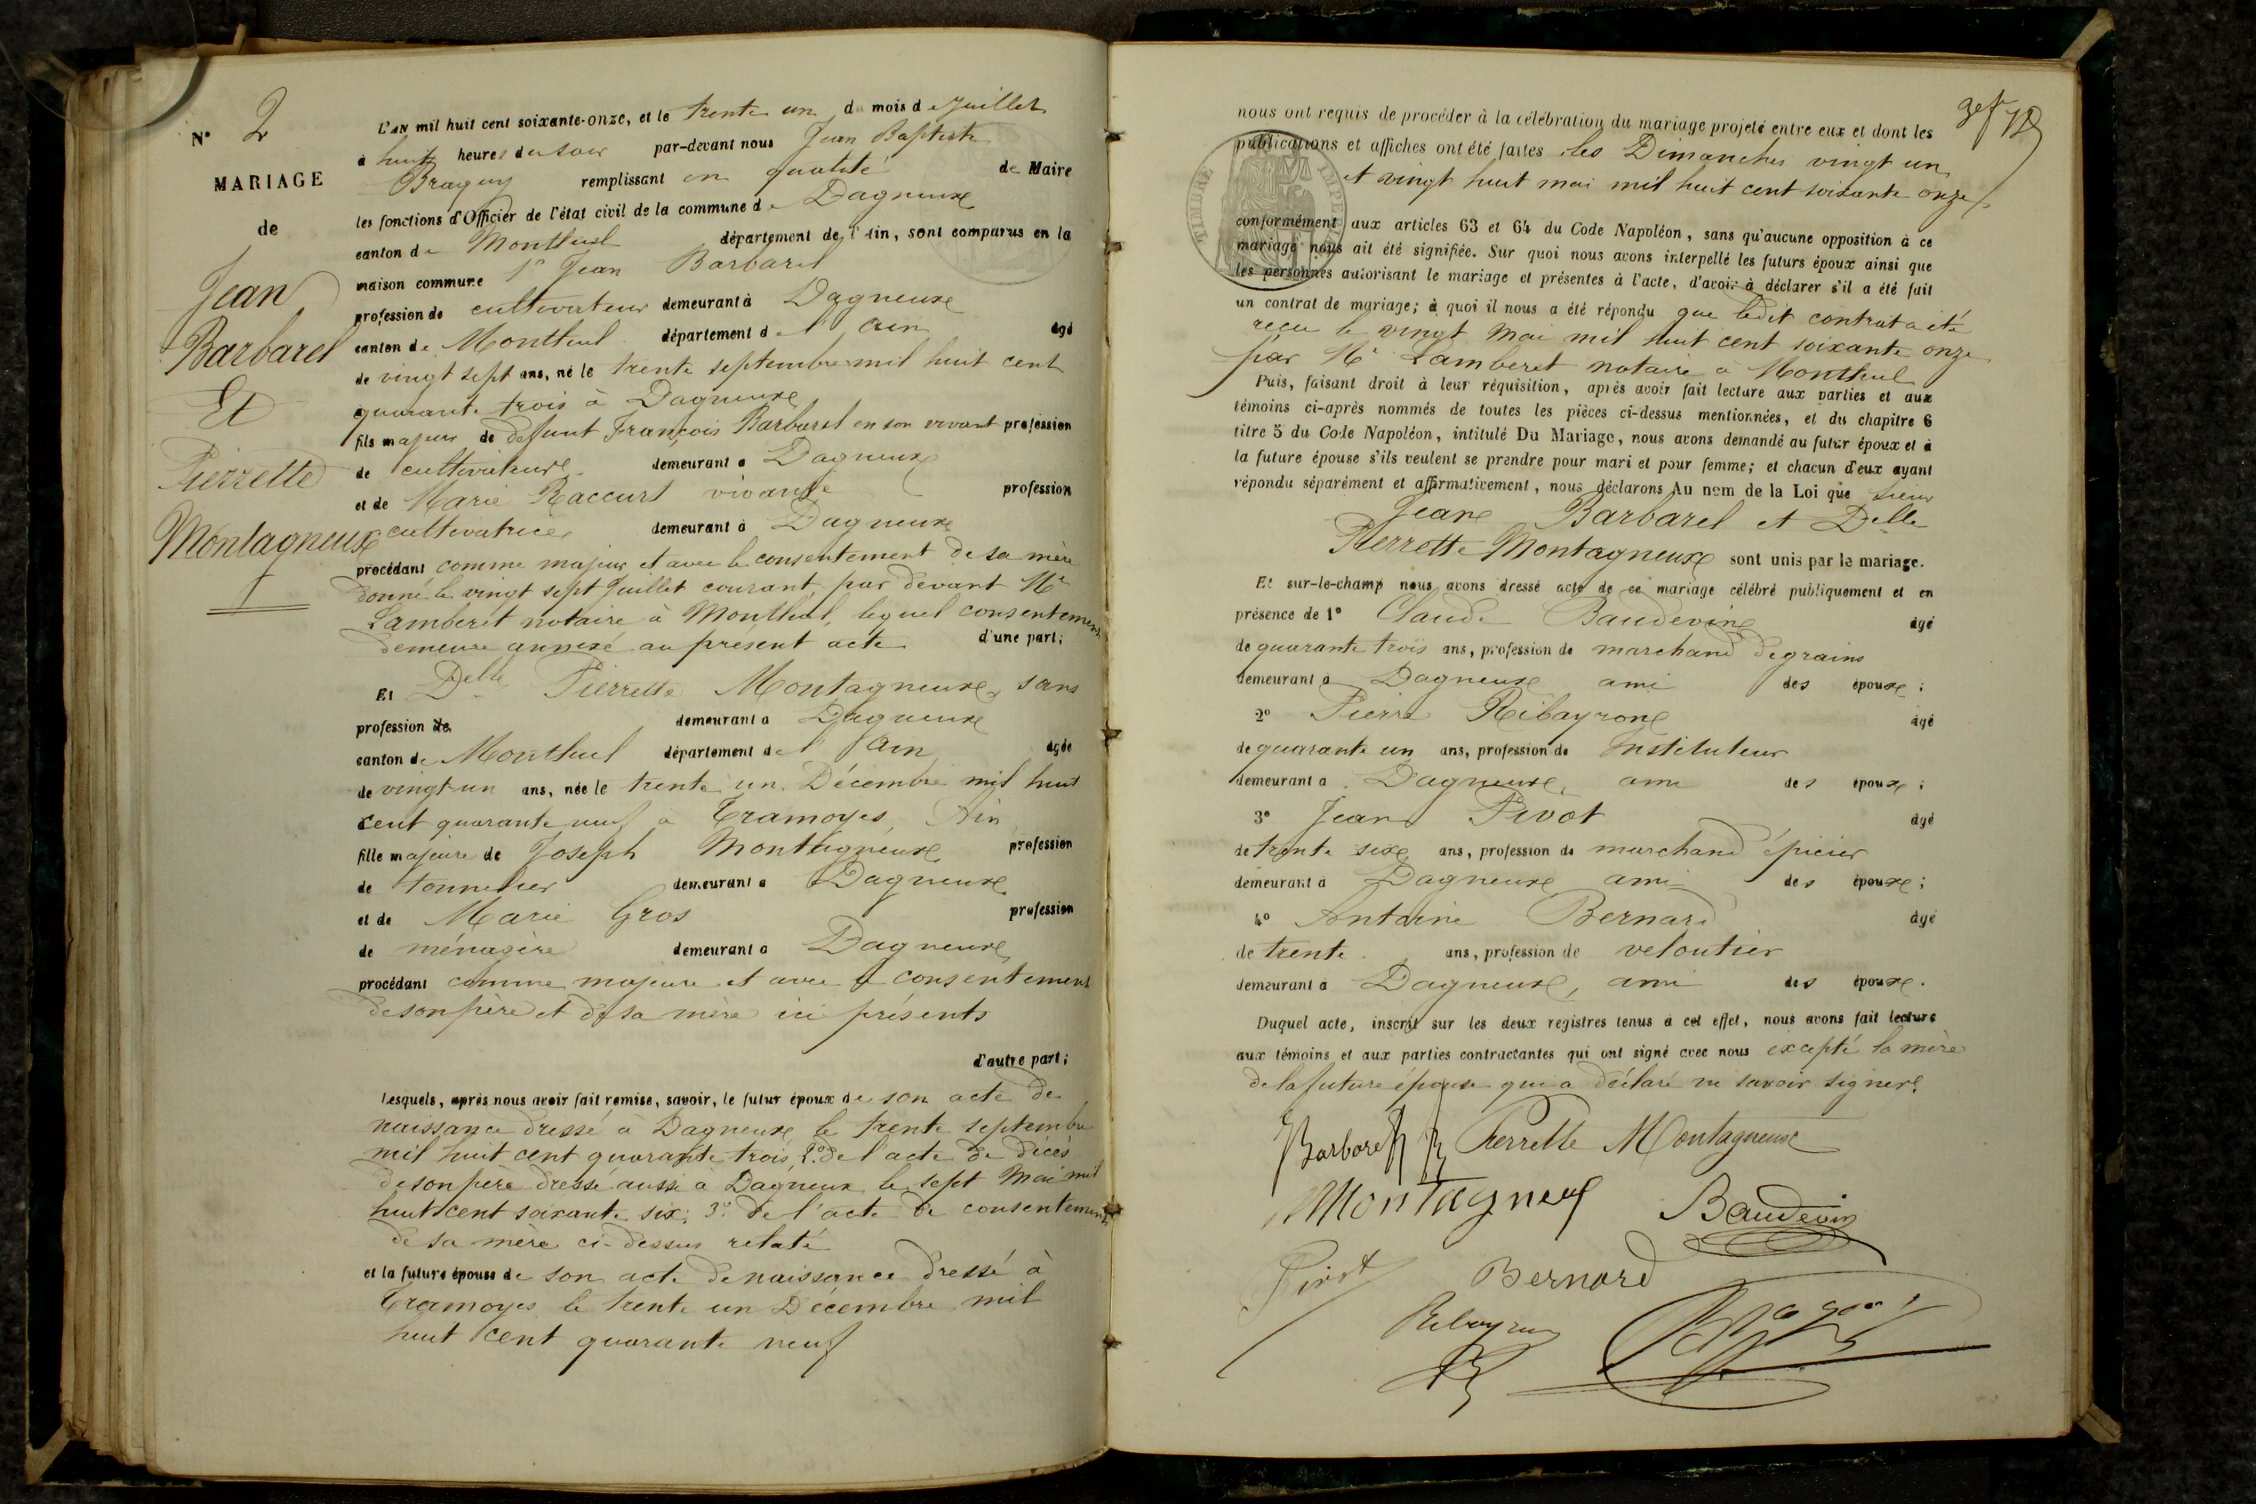 N° 2
MARIAGE
de
Jean
Barbarel
Et
Pierrette
Montagneux
L'AN mil huit cent soixante-onze, et le trente un du mois de Juillet
à huit heures du soir par-devant nous Jean Baptiste
Braguy remplissant en qualité de Maire
les fonctions d'Officier de l'état civil de la commune de Dagneux
canton de Montluel département de l'Ain, sont comparus en la
maison commune 1° Jean Barbarel
profession de cultivateur demeurant à Dagneux
canton de Montluel département de l'ain âgé
de vingt sept ans, né le trente septembre mil huit cent
quarante trois à Dagneux
fils majeur de défunt François Barbarel en son vivant profession
de cultivateur demeurant à Dagneux
et de Marie Raccurt vivante profession
cultivatrice demeurant à Dagneux
procédant comme majeur et avec le consentement de sa mère
donné le vingt sept Juillet courant, par devant Me
Lamberet notaire à Montluel, lequel consentement
demeure annexé au présent acte d'une part;
Et Delle Pierrette Montagneux, sans
profession de demeurant à Dagneux
canton de Montluel département de l'Ain âgée
de vingt-un ans, née le trente un Décembre mil huit
cent quarante neuf à Tramoyes, Ain
fille majeure de Joseph Montagneux profession
de tonnelier demeurant à Dagneux
et de Marie Gros profession
de ménagère demeurant à Dagneux
procédant comme majeure et avec le consentement
de son père et de sa mère ici présents
d'autre part;
Lesquels, après nous avoir fait remise, savoir, le futur époux de son acte de
naissance dressé à Dagneux le trente septembre
mil huit cent quarante trois, 2° de l'acte de décès
de son père dressé aussi à Dagneux le sept Mai mil
huit cent soixante six; 3° de l'acte de consentement
de sa mère ci-dessus relaté
et la future épouse de son acte de naissance dressé à
Tramoyes le trente un Décembre mil
huit cent quarante neuf
nous ont requis de procéder à la célébration du mariage projeté entre eux et dont les
publications et affiches ont été faites les Dimanches vingt un
et vingt huit mai mil huit cent soixante onze
conformément aux articles 63 et 64 du Code Napoléon, sans qu'aucune opposition à ce
mariage nous ait été signifiée. Sur quoi nous avons interpellé les futurs époux ainsi que
les personnes autorisant le mariage et présentes à l'acte, d'avoir à déclarer s'il a été fait
un contrat de mariage; à quoi il nous a été répondu que ledit contrat a été
reçu le vingt Mai mil huit cent soixante onze
par Me Lamberet notaire à Montluel
Puis, faisant droit à leur réquisition, après avoir fait lecture aux parties et aux
témoins ci-après nommés de toutes les pièces ci-dessus mentionnées, et du chapitre 6
titre 5 du Code Napoléon, intitulé Du Mariage, nous avons demandé au futur époux et à
la future épouse s'ils veulent se prendre pour mari et pour femme; et chacun d'eux ayant
répondu séparément et affirmativement, nous déclarons Au nom de la Loi que sieur
Jean Barbarel et Delle
Pierrette Montagneux sont unis par le mariage.
Et sur-le-champ nous avons dressé acte de ce mariage célébré publiquement et en
présence de 1° Claude Baudevin âgé
de quarante trois ans, profession de marchand de grains
demeurant à Dagneux ami des époux;
2° Pierre Ribayron âgé
de quarante un ans, profession de Instituteur
demeurant à Dagneux, ami des époux;
3° Jean Pivot âgé
de trente six ans, profession de marchand épicier
demeurant à Dagneux ami des époux;
4° Antoine Bernard âgé
de trente ans, profession de veloutier
demeurant à Dagneux, ami des époux.
Duquel acte, inscrit sur les deux registres tenus à cet effet, nous avons fait lecture
aux témoins et aux parties contractantes qui ont signé avec nous excepté la mère
de la future épouse qui a déclaré ne savoir signer.
Barbarel Pierrette Montagneux
Montagneux Baudevin
Pivot Bernard
Ribayron Braguy
TIMBRE IMPE